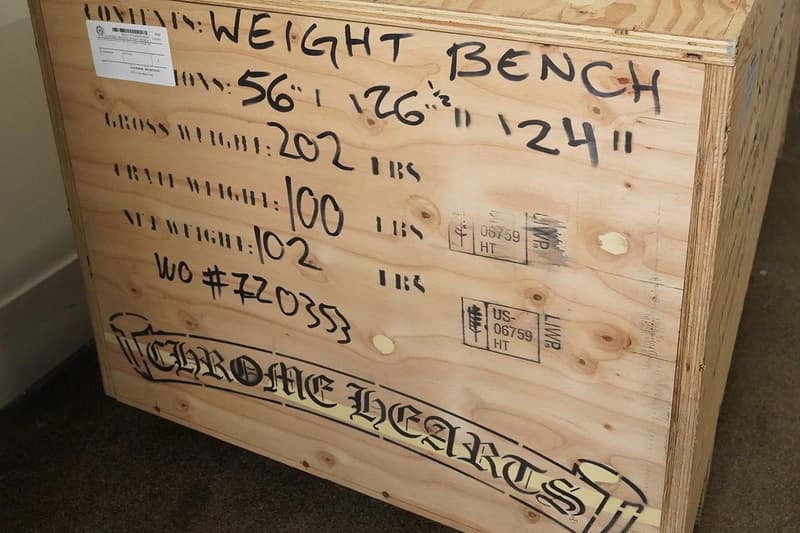 CONTENTS: WEIGHT BENCH
56" \ 26 1/2" \ 24"
GROSS WEIGHT: 202 LBS
CRATE WEIGHT: 100 LBS
NET WEIGHT: 102 LBS
WO #720353
06759
HT
LWP
US-
06759
HT
LWP
CHROME HEARTS